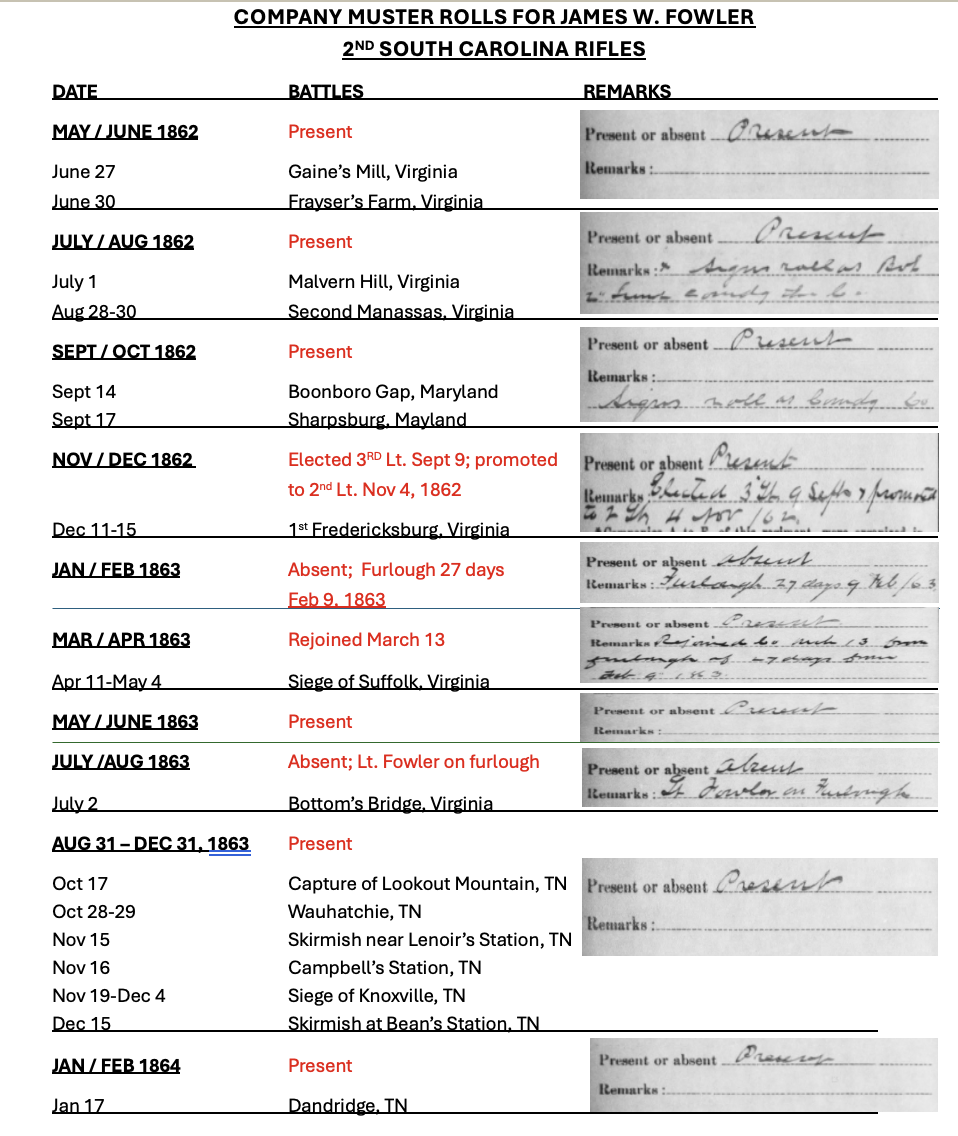 COMPANY MUSTER ROLLS FOR JAMES W. FOWLER
2ND SOUTH CAROLINA RIFLES
DATE BATTLES REMARKS
MAY / JUNE 1862 Present Present or absent Present
Remarks :
June 27 Gaine’s Mill, Virginia
June 30 Frayser’s Farm, Virginia
JULY / AUG 1862 Present Present or absent Present
Remarks : Signs roll as Bvt
July 1 Malvern Hill, Virginia
2 Lieut comdg the Co.
Aug 28-30 Second Manassas, Virginia
SEPT / OCT 1862 Present Present or absent Present
Remarks :
Sept 14 Boonboro Gap, Maryland
Signs roll as Comdg Co
Sept 17 Sharpsburg, Mayland
NOV / DEC 1862 Elected 3RD Lt. Sept 9; promoted Present or absent Present
to 2nd Lt. Nov 4, 1862 Remarks Elected 3 Lt 9 Sept & promoted
to 2 Lt 4 Nov /62
Dec 11-15 1st Fredericksburg, Virginia
JAN / FEB 1863 Absent; Furlough 27 days Present or absent absent
Remarks : Furlough 27 days 9 Feb /63
Feb 9, 1863
MAR / APR 1863 Rejoined March 13 Present or absent Present
Remarks Rejoined Co Mch 13 from
furlough of 27 days from
Feb 9 1863
Apr 11-May 4 Siege of Suffolk, Virginia
MAY / JUNE 1863 Present Present or absent Present
Remarks :
JULY /AUG 1863 Absent; Lt. Fowler on furlough Present or absent absent
Remarks : Lt Fowler on Furlough
July 2 Bottom’s Bridge, Virginia
AUG 31 – DEC 31, 1863 Present
Oct 17 Capture of Lookout Mountain, TN Present or absent Present
Oct 28-29 Wauhatchie, TN
Remarks :
Nov 15 Skirmish near Lenoir’s Station, TN
Nov 16 Campbell’s Station, TN
Nov 19-Dec 4 Siege of Knoxville, TN
Dec 15 Skirmish at Bean’s Station, TN
JAN / FEB 1864 Present Present or absent Present
Remarks :
Jan 17 Dandridge, TN